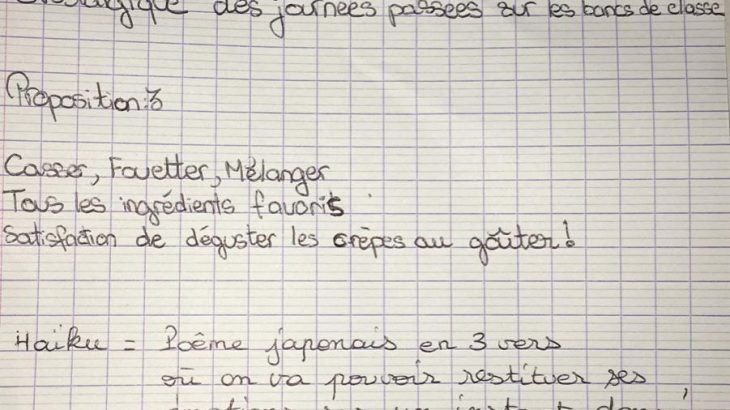 des journées passées sur les bancs de classe
Proposition:3
Casser, Fouetter, Mélanger
Tous les ingrédients favoris
Satisfaction de déguster les crêpes au goûter!
Haiku = Poême japonais en 3 vers
où on va pouvoir restituer ses